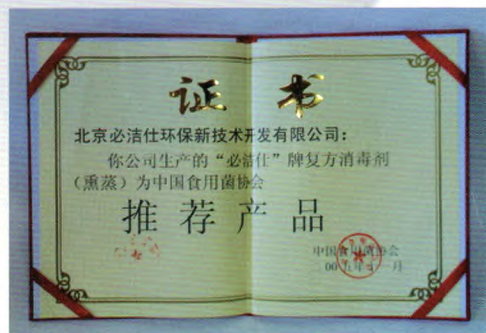 证书
北京必洁仕环保新技术开发有限公司：
你公司生产的“必洁仕”牌复方消毒剂
（熏蒸）为中国食用菌协会
推荐产品
中国食用菌协会
月